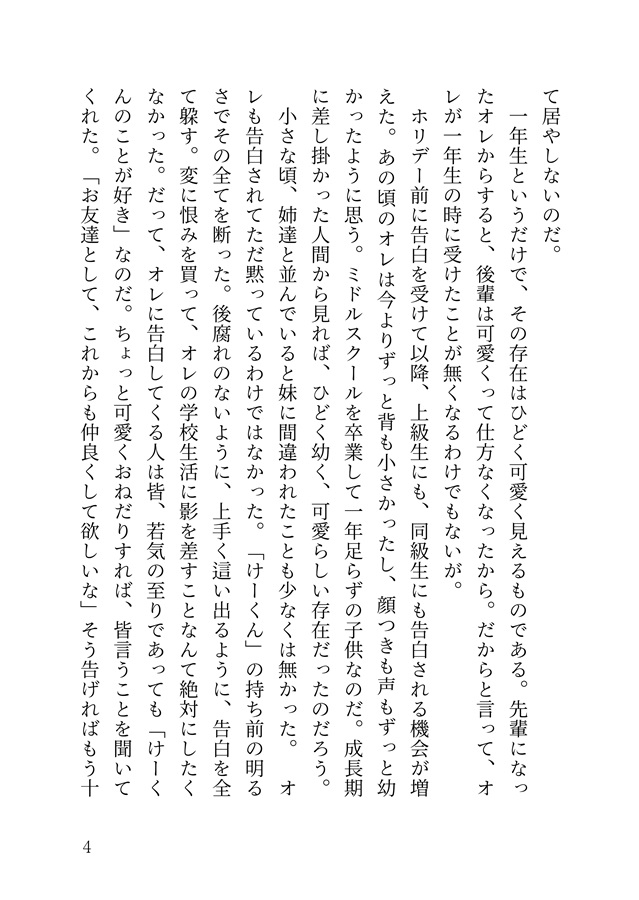 て居やしないのだ。
　一年生というだけで、その存在はひどく可愛く見えるものである。先輩になっ
たオレからすると、後輩は可愛くって仕方なくなったから。だからと言って、オ
レが一年生の時に受けたことが無くなるわけでもないが。
　ホリデー前に告白を受けて以降、上級生にも、同級生にも告白される機会が増
えた。あの頃のオレは今よりずっと背も小さかったし、顔つきも声もずっと幼
かったように思う。ミドルスクールを卒業して一年足らずの子供なのだ。成長期
に差し掛かった人間から見れば、ひどく幼く、可愛らしい存在だったのだろう。
　小さな頃、姉達と並んでいると妹に間違われたことも少なくは無かった。　オ
レも告白されてただ黙っているわけではなかった。「けーくん」の持ち前の明る
さでその全てを断った。後腐れのないように、上手く這い出るように、告白を全
て躱す。変に恨みを買って、オレの学校生活に影を差すことなんて絶対にしたく
なかった。だって、オレに告白してくる人は皆、若気の至りであっても「けーく
んのことが好き」なのだ。ちょっと可愛くおねだりすれば、皆言うことを聞いて
くれた。「お友達として、これからも仲良くして欲しいな」そう告げればもう十
4